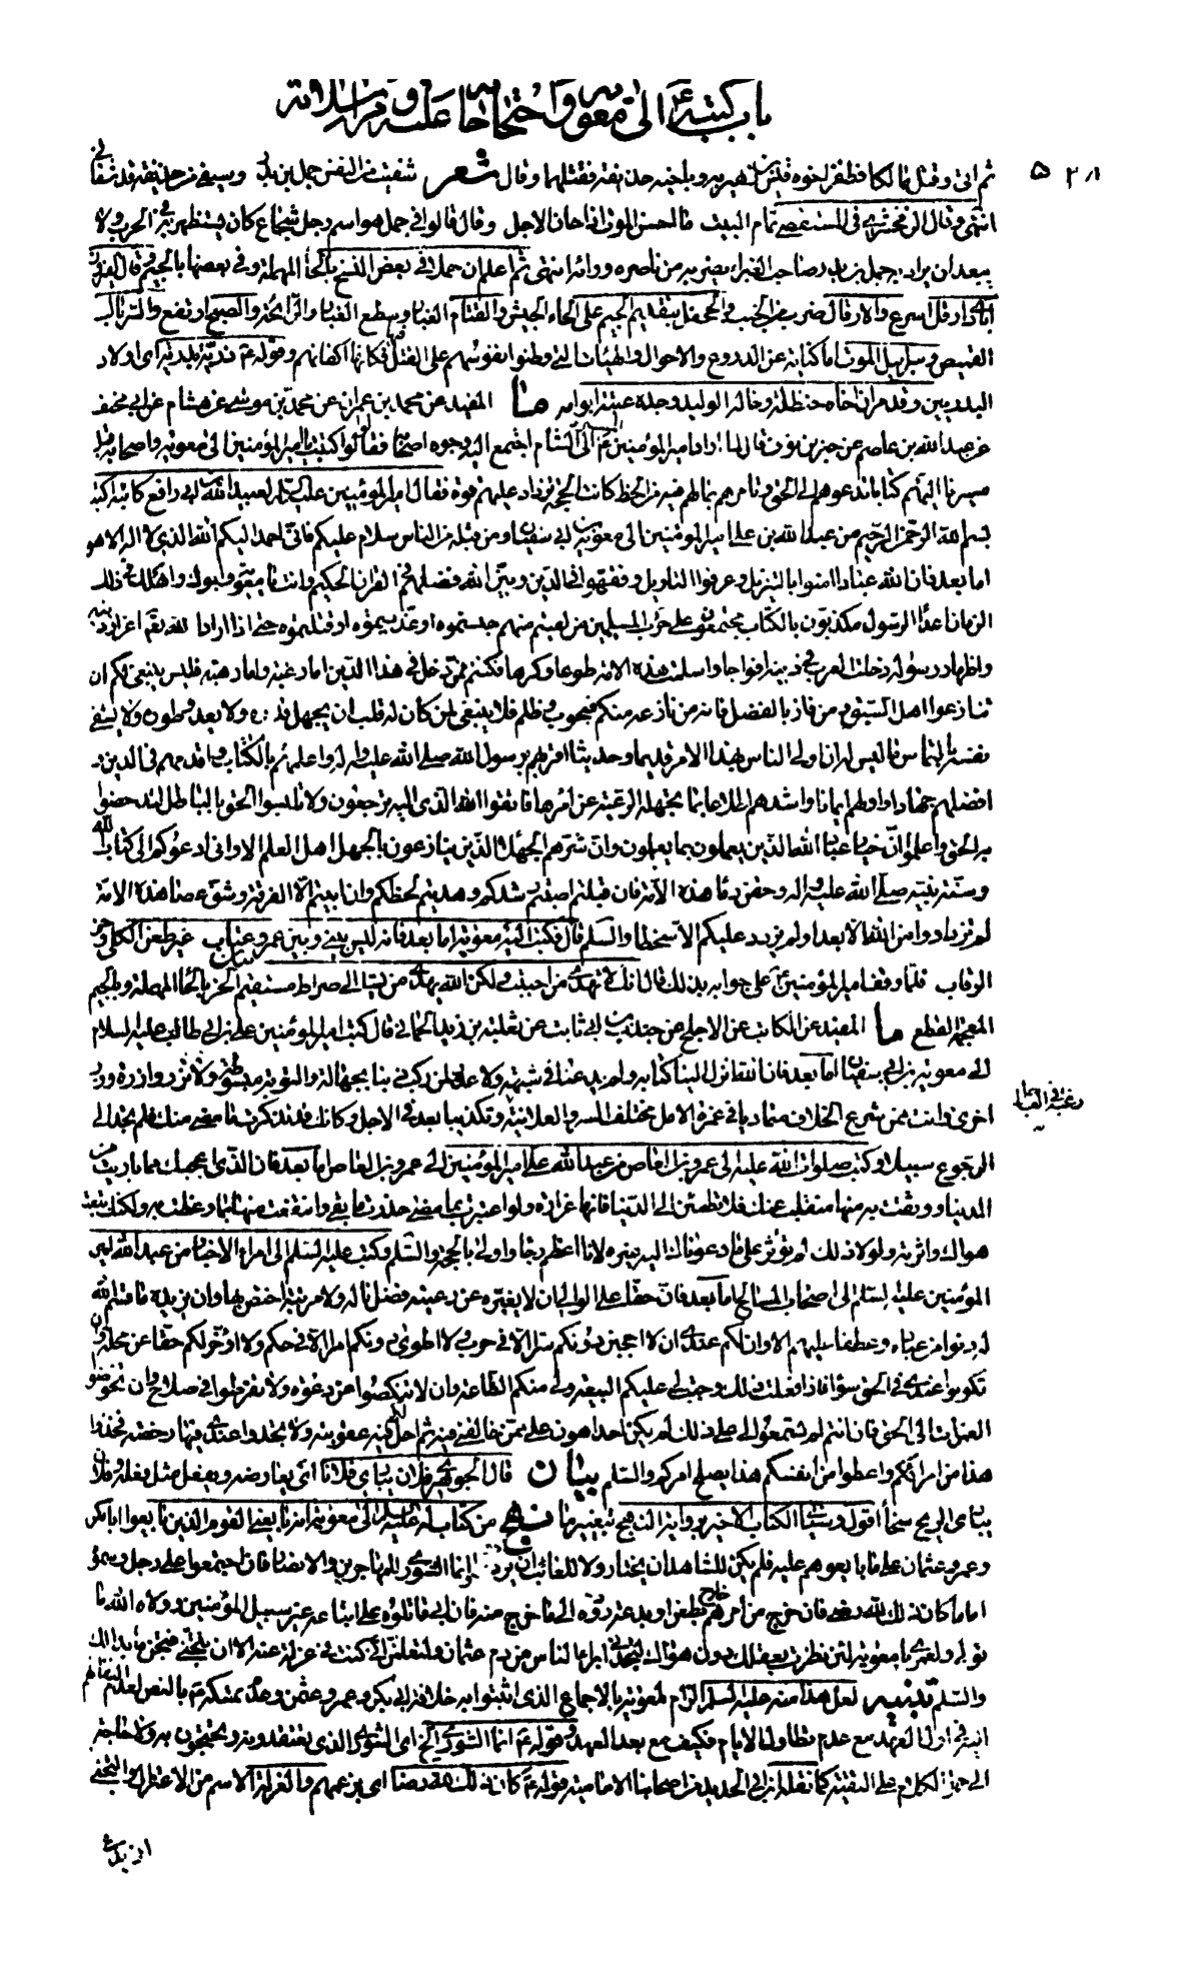 باب كتبه ع الى معوية و احتجاجاته عليه و مراسلاته
٥٢٨
ثم اتى وقتل مالكا فظفر اخوه قيس بن زهير به وباخيه حذيفة فقتلهما وقال شعر شفيت من النفس حمل بن بدر وسيفي من حذيفة قد شفاني
انتهى وقال الزمخشري في المستقصى تمام البيت ما احسن الموت اذا حان الاجل وقال قالوا في حمل هو اسم رجل شجاع كان يستظهر به في الحرب ولا
يبعد ان يراد به حمل بن بدر صاحب الغبراء يضرب به من ناصره ورائه انتهى ثم اعلم ان حملا في بعض النسخ بالحاء المهملة وفي بعضها بالجيم
ارقل اسرع والارقال ضرب من الخبب والجحفل بتقديم الجيم على الحاء الجيش والقتام الغبار وسطع الغبار والرايحة والصبح ارتفع والسربال
القميص وسرابيل الموت اما كناية عن الدروع والاحوال والهيئات التي وطنوا نفوسهم على القتل فيها فكانها اكفانهم وقوله ع ذرية بدرية اى اولاد
البدريين وقد مر ان اخاه حنظلة وخاله الوليد وجده عتبة ابو امه ما المفيد عن محمد بن عمران عن محمد بن موسى عن هشام عن ابي مخنف
عن عبد الله بن عاصم عن جبر بن نوف قال لما اراد امير المؤمنين ع المسير الى الشام اجتمع اليه وجوه اصحابه فقالوا لو كتبت يا امير المؤمنين الى معوية واصحابه قبل
مسيرنا اليهم كتابا تدعوهم الى الحق وتامرهم بما لهم فيه من الحظ كانت الحجة تزداد عليهم قوة فقال امير المؤمنين عليه السلام لعبيد الله بن ابي رافع كاتبه اكتب
بسم الله الرحمن الرحيم من عبد الله بن علي امير المؤمنين الى معوية بن ابي سفيان ومن قبله من الناس سلام عليكم فاني احمد اليكم الله الذي لا اله الا هو
اما بعد فان لله عبادا امنوا بالتنزيل وعرفوا التاويل وفقهوا في الدين وبين الله فضلهم في القران الحكيم وانت يا معوية وابوك واهلك في ذلك
الزمان اعداء الرسول مكذبون بالكتاب مجتمعون على حرب المسلمين من لقيتم منهم حبستموه او عذبتموه او قتلتموه حتى اذا اراد الله تع اعزاز دينه
واظهار رسوله دخلت العرب في دينه افواجا واسلمت هذه الامة طوعا وكرها فكنتم ممن دخل في هذا الدين اما رغبة واما رهبة فليس ينبغي لكم ان
تنازعوا اهل السبق ومن فاز بالفضل فانه من نازعه منكم فبحوب وظلم فلا ينبغي لمن كان له قلب ان يجهل قدره ولا يعدو طوره ولا يشقي
نفسه بالتماس ما ليس له ان اولى الناس بهذا الامر قديما وحديثا اقربهم برسول الله صلى الله عليه واله واعلمهم بالكتاب واقدمهم في الدين و
افضلهم جهادا واولهم ايمانا واشدهم اطلاعا بما يجهله الرعية عن امرها فاتقوا الله الذي اليه ترجعون ولا تلبسوا الحق بالباطل لتدحضوا
به الحق واعلموا ان خيار عباد الله الذين يعملون بما يعلمون وان شرهم الجهلاء الذين ينازعون بالجهل اهل العلم الا واني ادعوكم الى كتاب الله
وسنة نبيه صلى الله عليه واله وحقن دماء هذه الامة فان قبلتم اصبتم رشدكم وهديتم لحظكم وان ابيتم الا الفرقة وشق عصا هذه الامة
لم تزدادوا من الله الا بعدا ولم يزدد عليكم الا سخطا والسلم قال فكتب اليه معوية اما بعد فانه ليس بيني وبين عمرو عتاب غير طعن الكلى وحز
الرقاب فلما وقف امير المؤمنين ع على جوابه بذلك قال انك لا تهدي من احببت ولكن الله يهدي من يشاء الى صراط مستقيم بيان الحز بالحاء المهملة وبالجيم
المعجمة القطع ما المفيد عن الكاتب عن الاجلح عن جندب بن ابي ثابت عن ثعلبة بن زيد الحماني قال كتب امير المؤمنين علي بن ابي طالب عليه السلام
الى معوية بن ابي سفيان اما بعد فان الله انزل الينا كتابه ولم يدعنا في شبهة ولا عذر لمن ركب ذنبا بجهالة والتوبة مبسوطة ولا تزر وازرة وزر
اخرى وانت ممن شرع الخلاف متماديا في غمرة الامل مختلف السر والعلانية وتكذيبا بعد في الاجل وكانك قد تذكرت ما مضى منك فلم تجد الى
الرجوع سبيلا وكتب صلوات الله عليه الى عمرو بن العاص من عبد الله علي امير المؤمنين الى عمرو بن العاص اما بعد فان الذي اعجبك مما تاويت من
الدنيا ووثقت به منها منقلب عنك فلا تطمئن الى الدنيا فانها غرارة ولو اعتبرت بما مضى حذرت ما بقي وانتفعت منها بما وعظت به ولكنك تبعت
هواك واثرته ولولا ذلك لم تؤثر على ما دعوناك اليه غيره لانا اعظم رجاء واولى بالحجة والسلم وكتب عليه السلم الى امراء الاجناد من عبد الله امير
المؤمنين عليه السلم الى اصحاب المسالح اما بعد فان حقا على الوالي ان لا يغيره عن رعيته فضل ناله ولا مرتبة اختص بها وان يزيده ما قسم الله
له دنوا من عباده وعطفا عليهم الا وان لكم عندي ان لا احجبن دونكم سرا الا في حرب ولا اطوي دونكم امرا الا في حكم ولا اؤخر لكم حقا عن محله وان
تكونوا عندي في الحق سواء فاذا فعلت ذلك وجبت لي عليكم البيعة ولي منكم الطاعة وان لا تنكصوا عن دعوة ولا تفرطوا في صلاح وان تخوضوا
الغمرات الى الحق فان انتم لم تسمعوا لي على ذلك لم يكن احد اهون علي ممن خالفني فيه ثم احل لكم فيه عقوبته ولا تجدوا عندي فيها رخصة فخذوا
هذا من امرائكم واعطوا من انفسكم هذا يصلح امركم والسلم بيان قال الجوهري فلان يباري فلانا اى يعارضه ويفعل مثل فعله وفلان
يباري الريح سخاء اقول وسياتي الكتاب الاخير برواية النهج بتغيير ما نهج من كتاب له عليه السلم الى معوية انه بايعني القوم الذين بايعوا ابا بكر
وعمر وعثمان على ما بايعوهم عليه فلم يكن للشاهد ان يختار ولا للغائب ان يرد وانما الشورى للمهاجرين والانصار فان اجتمعوا على رجل وسموه
اماما كان ذلك لله رضى فان خرج من امرهم خارج بطعن او بدعة ردوه الى ما خرج منه فان ابى قاتلوه على اتباعه غير سبيل المؤمنين وولاه الله ما
تولى ولعمري يا معوية لئن نظرت بعقلك دون هواك لتجدني ابرء الناس من دم عثمان ولتعلمن اني كنت في عزلة عنه الا ان تتجنى فتجن ما بدا لك
والسلم تبيين لعل هذا منه عليه السلم الزام لمعوية بالاجماع الذي اثبتوا به خلافة ابي بكر وعمر وعثمن وعدم تمسكه ع بالنص لعدم التفاتهم
اليه في اول العهد مع عدم تطاول الايام فكيف مع بعد العهد وقوله ع انما الشورى الخ اى الشورى الذي تعتقدونه وتحتجون به ولا حاجة
الى حمل الكلام على التقية كما نقله ابن ابي الحديد من اصحابنا الامامية وقوله ع كان ذلك لله رضا اى بزعمهم والعزلة الاسم من الاعتزال والتجني